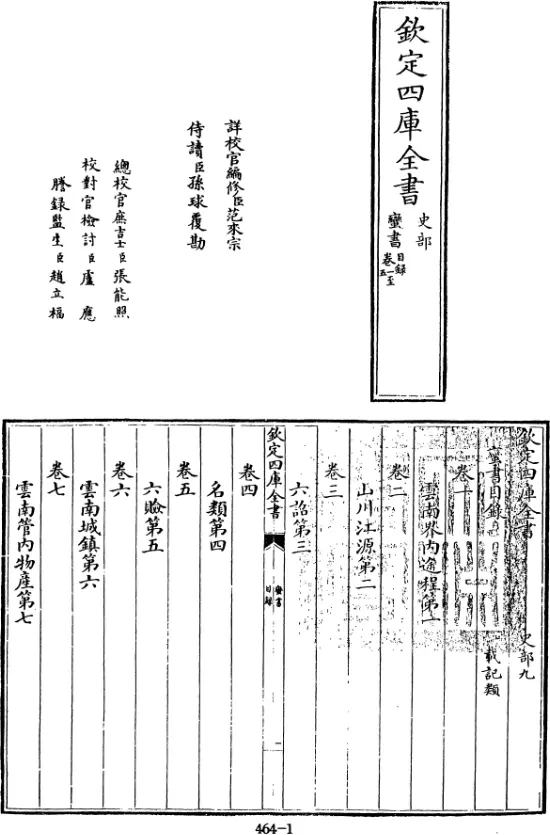 欽定四庫全書
史部
蠻書
目録
卷一至
五
詳校官編修臣范來宗
侍讀臣孫球覆勘
總校官庶吉士臣張能照
校對官檢討臣盧應
謄録監生臣趙立福
欽定四庫全書
史部九
蠻書目録
載記類
卷一
雲南界内途程第一
卷二
山川江源第二
卷三
六詔第三
欽定四庫全書
蠻書
目録
一
卷四
名類第四
卷五
六瞼第五
卷六
雲南城鎮第六
卷七
雲南管内物產第七
464-1